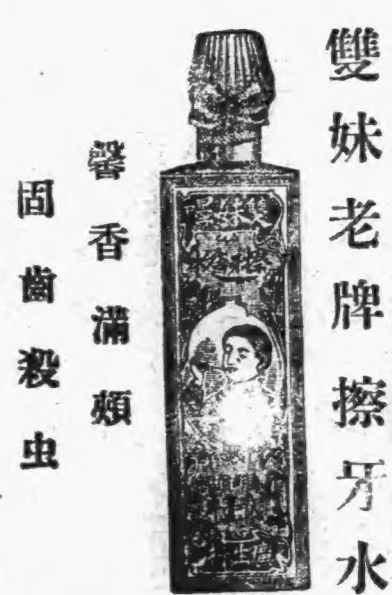 雙妹老牌擦牙水
馨香滿頰
固齒殺虫